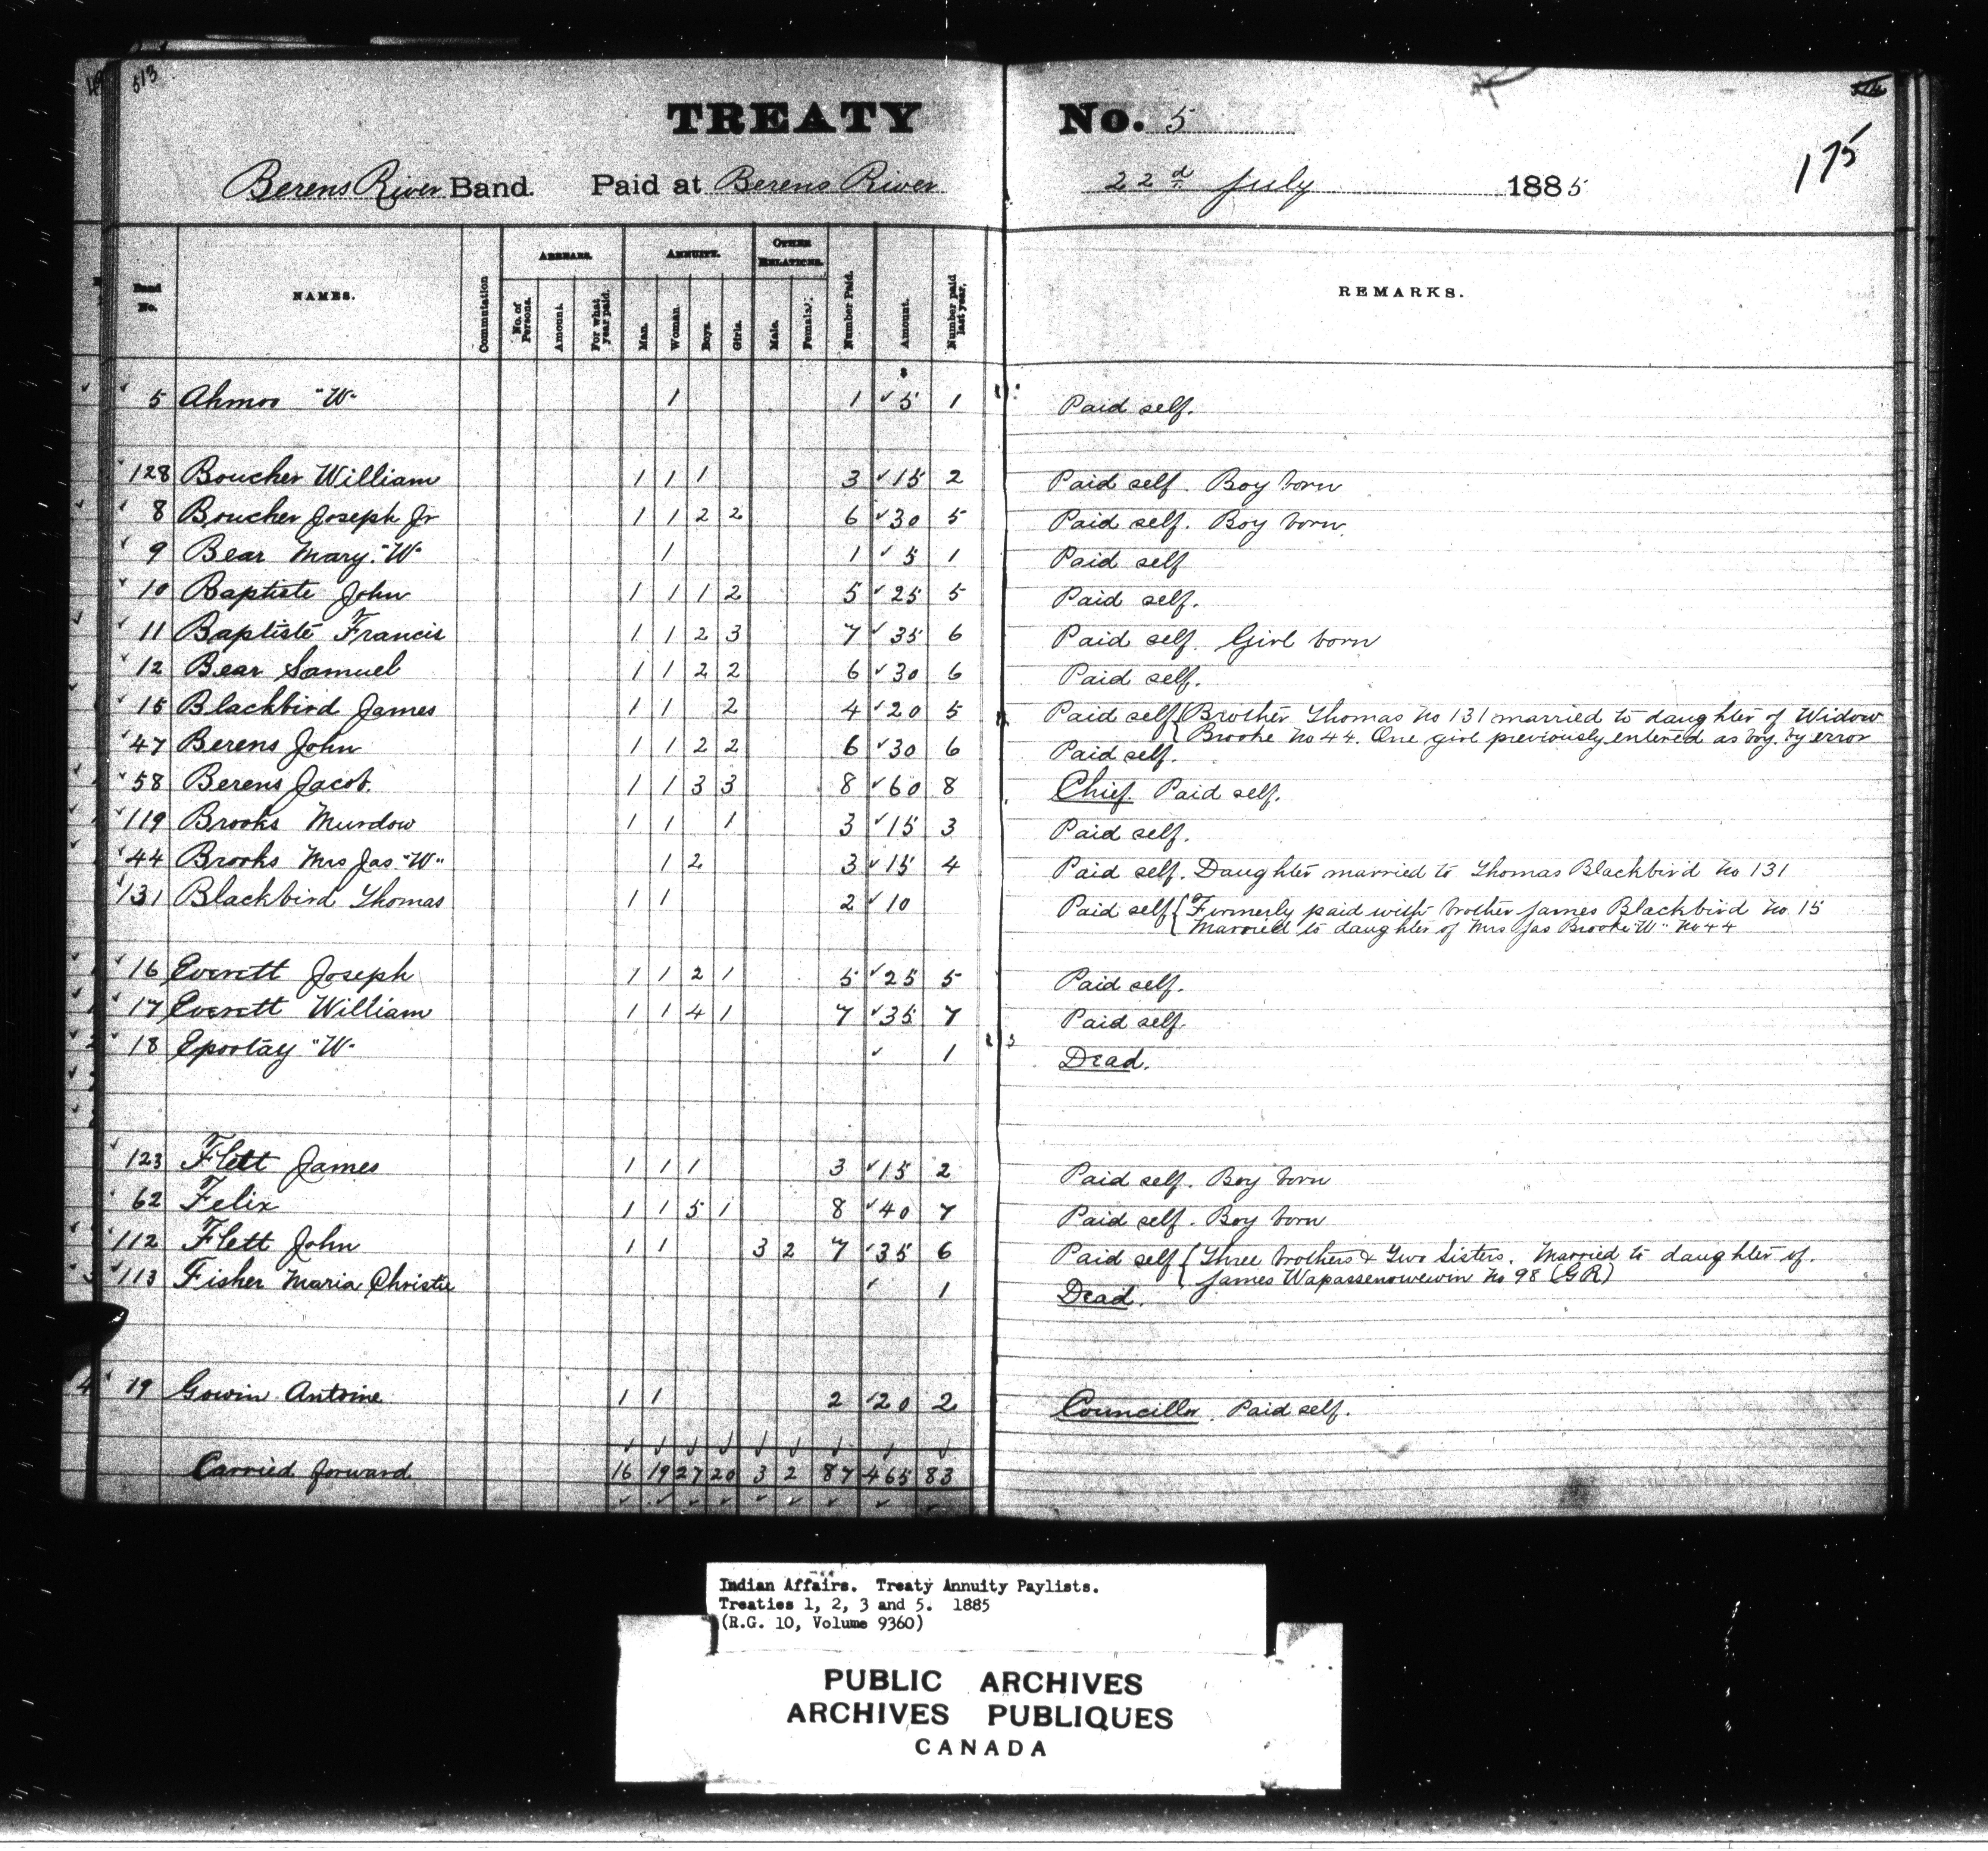 513
TREATY No. 5
175
Berens River Band. Paid at Berens River 22d July 1885
Band No. NAMES. Commutation ARREARS. No. of Persons. Amount. For what year paid. ANNUITY. Man. Woman. Boys. Girls. OTHER RELATIONS. Male. Female. Number Paid. Amount. Number paid last year. REMARKS.
$
5 Ahmoo "W" 1 1 5 1 Paid self.
128 Boucher William 1 1 1 3 15 2 Paid self. Boy born
8 Boucher Joseph Jr 1 1 2 2 6 30 5 Paid self. Boy born.
9 Bear Mary "W" 1 1 5 1 Paid self
10 Baptiste John 1 1 1 2 5 25 5 Paid self.
11 Baptiste Francis 1 1 2 3 7 35 6 Paid self. Girl born
12 Bear Samuel 1 1 2 2 6 30 6 Paid self.
15 Blackbird James 1 1 2 4 20 5 Paid self { Brother Thomas No 131 married to daughter of Widow
Brooke No 44. One girl previously entered as boy by error
47 Berens John 1 1 2 2 6 30 6 Paid self.
58 Berens Jacob. 1 1 3 3 8 60 8 Chief. Paid self.
119 Brooks Murdow 1 1 1 3 15 3 Paid self.
44 Brooks Mrs Jas "W" 1 2 3 15 4 Paid self. Daughter married to Thomas Blackbird No 131
131 Blackbird Thomas 1 1 2 10 Paid self { Formerly paid with brother James Blackbird No 15
Married to daughter of Mrs Jas Brooke "W" No 44
16 Everett Joseph 1 1 2 1 5 25 5 Paid self.
17 Everett William 1 1 4 1 7 35 7 Paid self.
18 Epootay "W" 1 Dead.
123 Flett James 1 1 1 3 15 2 Paid self. Boy born
62 Felix 1 1 5 1 8 40 7 Paid self. Boy born
112 Flett John 1 1 3 2 7 35 6 Paid self { Three brothers & Two Sisters. Married to daughter of
James Wapassenowewin No 98 (GR)
113 Fisher Maria Christie 1 Dead.
19 Gowin Antoine 1 1 2 20 2 Councillor. Paid self.
Carried forward 16 19 27 20 3 2 87 465 83
Indian Affairs. Treaty Annuity Paylists.
Treaties 1, 2, 3 and 5. 1885
(R.G. 10, Volume 9360)
PUBLIC ARCHIVES
ARCHIVES PUBLIQUES
CANADA